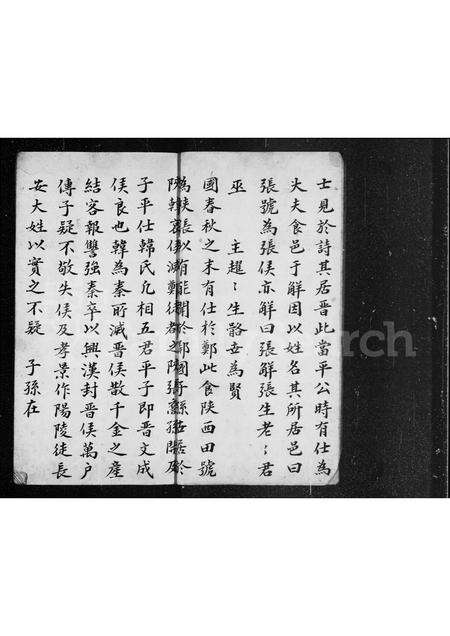 士見於詩其居晋此當平公時有仕為
大夫食邑于解因以姓名其所居邑曰
張號為張侯亦解曰張解張生老〻君
巫 主趯〻生骼世為賢
國春秋之末有仕於鄭此食陝西田號
子平仕韓氏允相五君平子即晋文成
侯良也韓為秦所滅晋侯散千金之産
結客報讐強秦卒以興漢封晋侯萬户
傳子疑不敬失侯及孝景作陽陵徒長
安大姓以實之不疑 子孫在